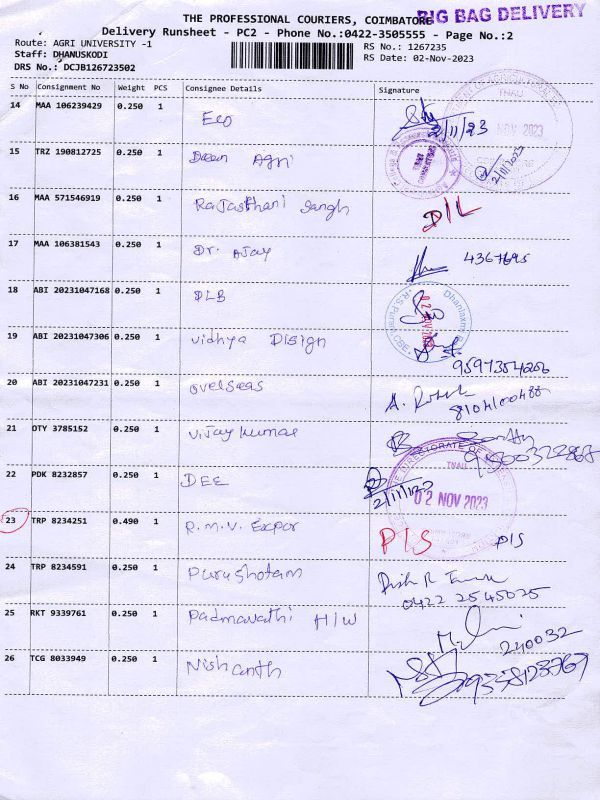 BIG BAG DELIVERY
THE PROFESSIONAL COURIERS, COIMBATORE
Delivery Runsheet - PC2 - Phone No.:0422-3505555 - Page No.:2
Route: AGRI UNIVERSITY -1
RS No.: 1267235
Staff: DHANUSKODI
RS Date: 02-Nov-2023
DRS No.: DCJB126723502
S No Consignment No Weight PCS Consignee Details Signature
14 MAA 106239429 0.250 1 Eco 2/11/23
TNAU
NOV 2023
15 TRZ 190812725 0.250 1 Dean Agri 2/11/2023
16 MAA 571546919 0.250 1 Rajasthani Sangh D/L
17 MAA 106381543 0.250 1 Dr. Ajay 4367695
18 ABI 20231047168 0.250 1 DLB
Dhanlaxmi
R.S Puram, CBE
02 NOV 2023
19 ABI 20231047306 0.250 1 Vidhya Disign
9597354266
20 ABI 20231047231 0.250 1 Overseas A.
21 OTY 3785152 0.250 1 Vijay Kumar
TNAU
22 PDK 8232857 0.250 1 DEE 2/11/23
02 NOV 2023
23 TRP 8234251 0.490 1 R.M.V. Expor P/S P/S
24 TRP 8234591 0.250 1 Purushotam
0422 2545025
25 RKT 9339761 0.250 1 Padmavathi H/W 240032
26 TCG 8033949 0.250 1 Nishanth